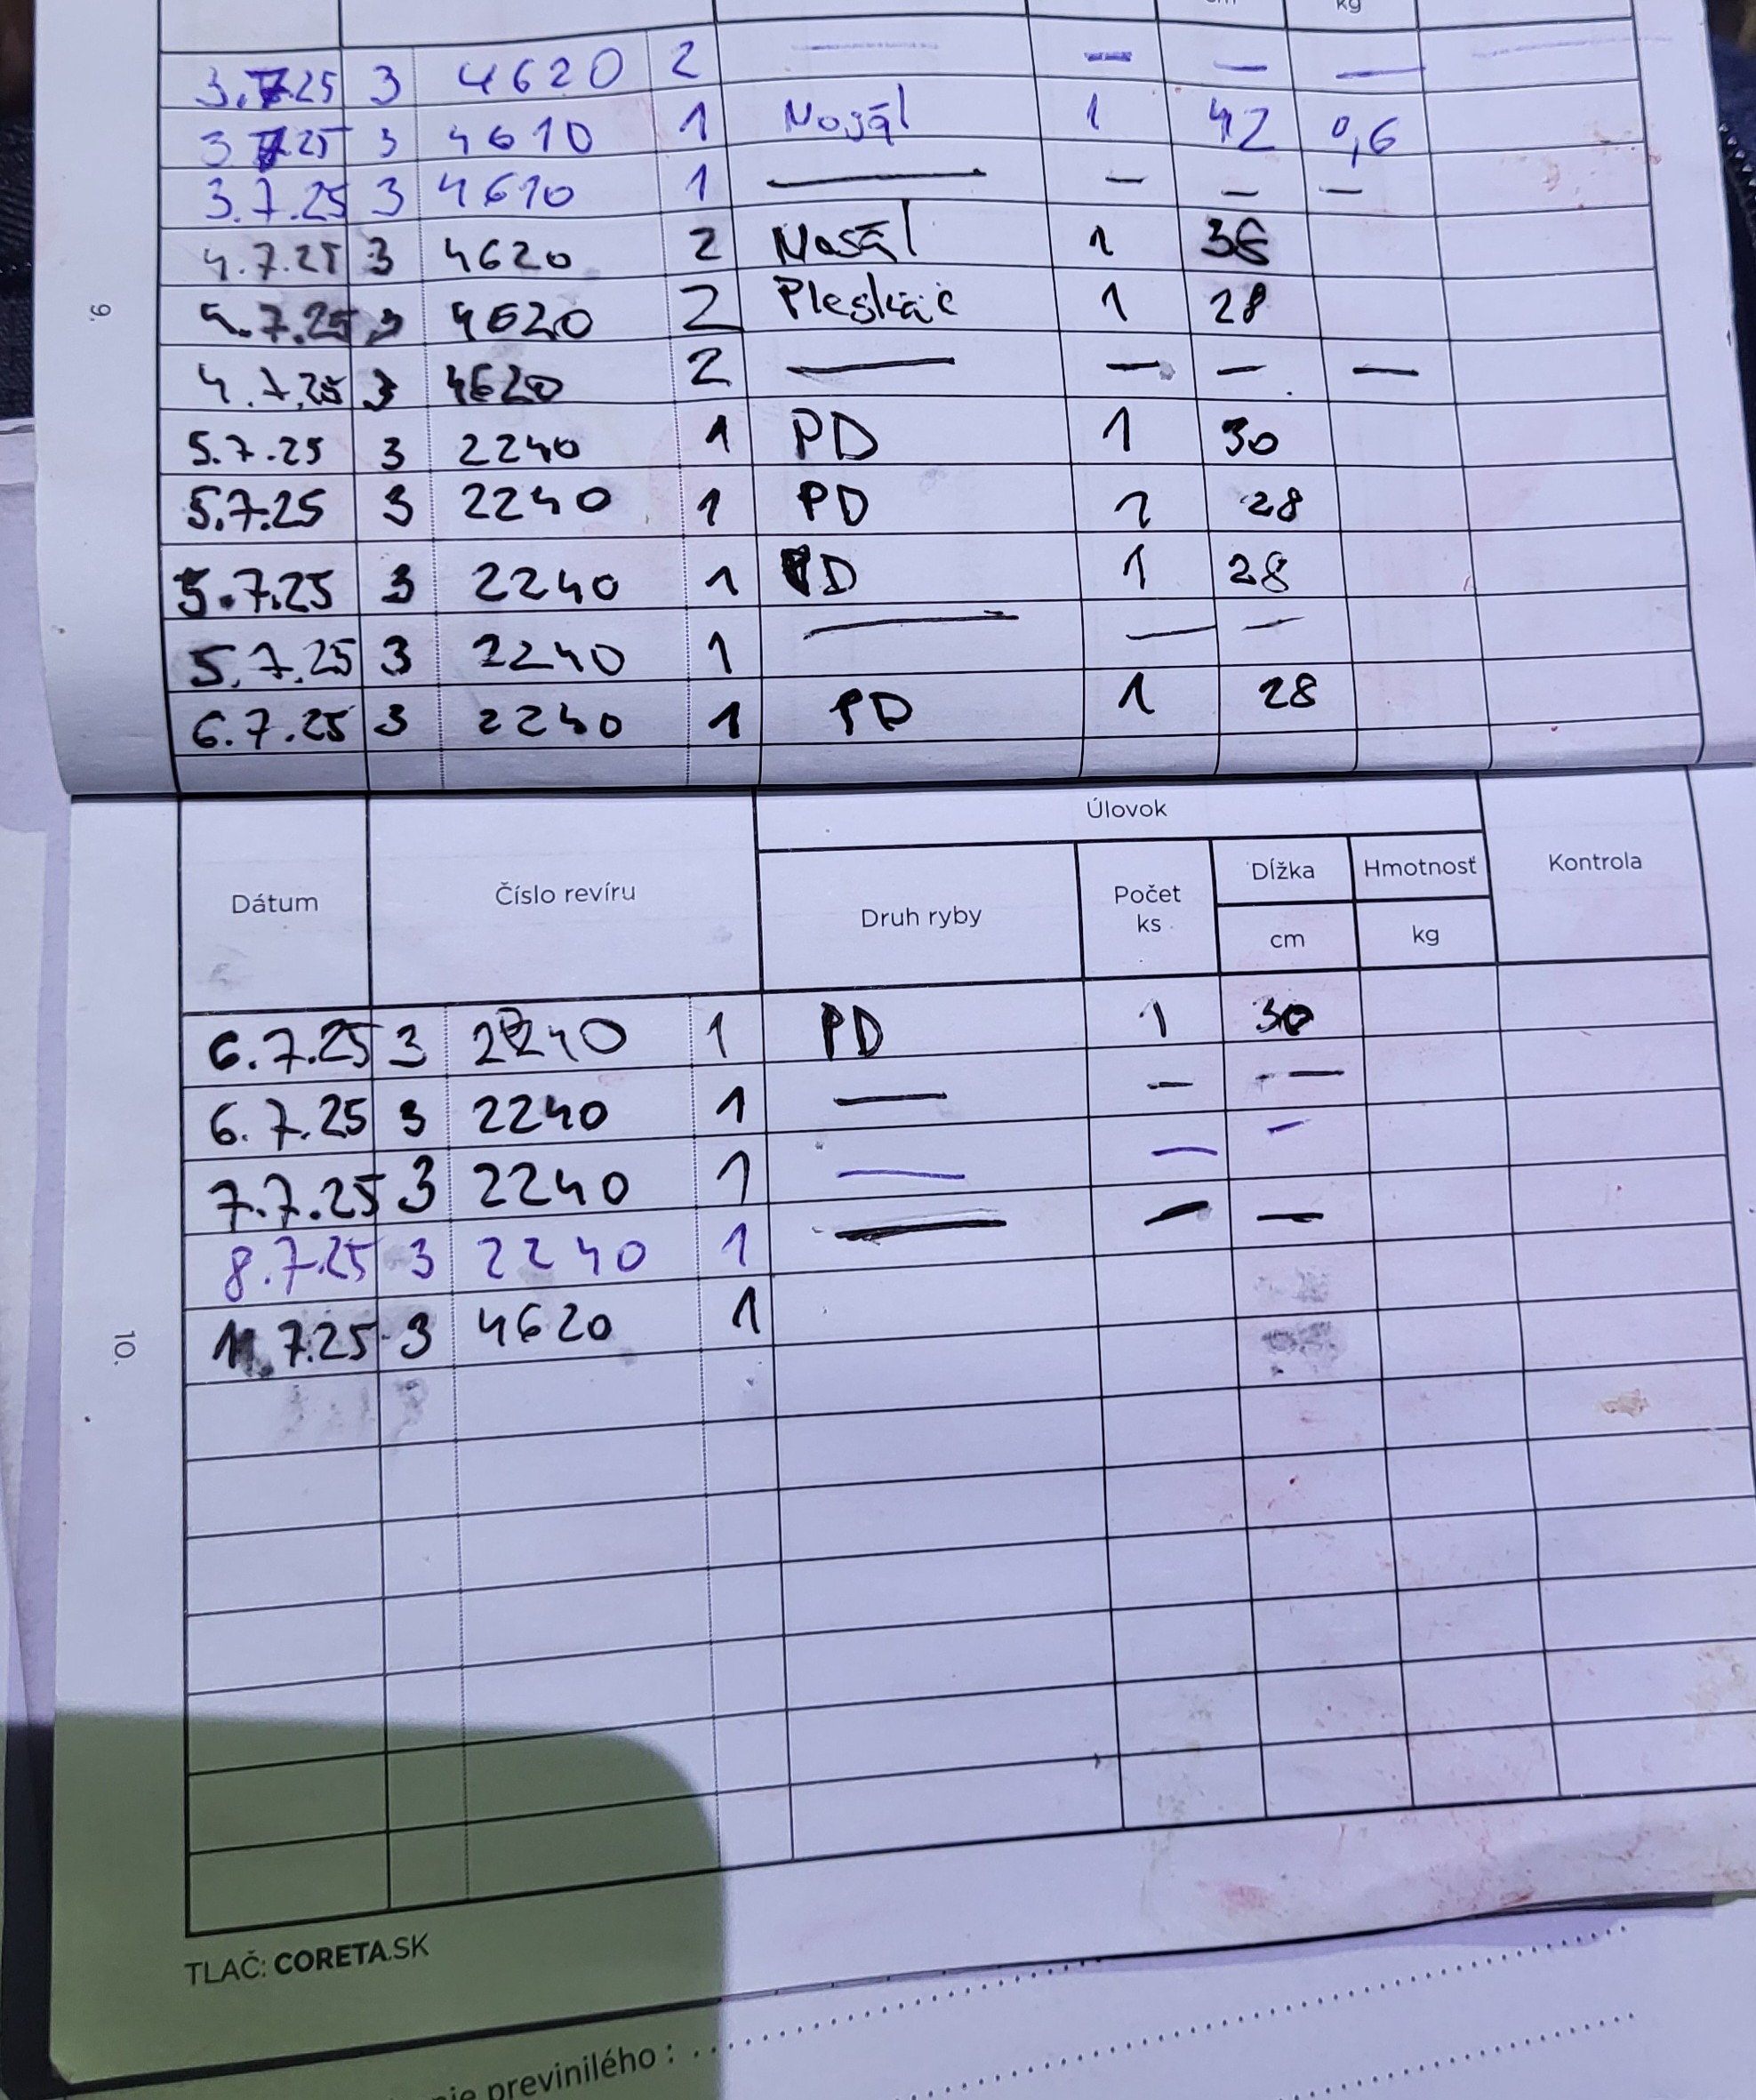 kg
3.7.25 3 4620 2 — — — —
3.7.25 3 4610 1 Nosál 1 42 0,6
3.7.25 3 4610 1 — — — —
4.7.25 3 4620 2 Nosál 1 36
4.7.25 3 4620 2 Pleskáč 1 28
4.7.25 3 4620 2 — — — —
5.7.25 3 2240 1 PD 1 30
5.7.25 3 2240 1 PD 1 28
5.7.25 3 2240 1 PD 1 28
5.7.25 3 2240 1 — — —
6.7.25 3 2240 1 PD 1 28
9.
Dátum Číslo revíru Úlovok Kontrola
Druh ryby Počet ks Dĺžka Hmotnosť
cm kg
6.7.25 3 2240 1 PD 1 30
6.7.25 3 2240 1 — — —
7.7.25 3 2240 1 — — —
8.7.25 3 2240 1 — — —
11.7.25 3 4620 1
10.
TLAČ: CORETA.SK
previnilého :